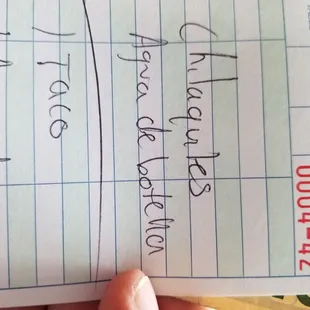 0004-42
Chilaquiles
Agua de botella
1 Taco